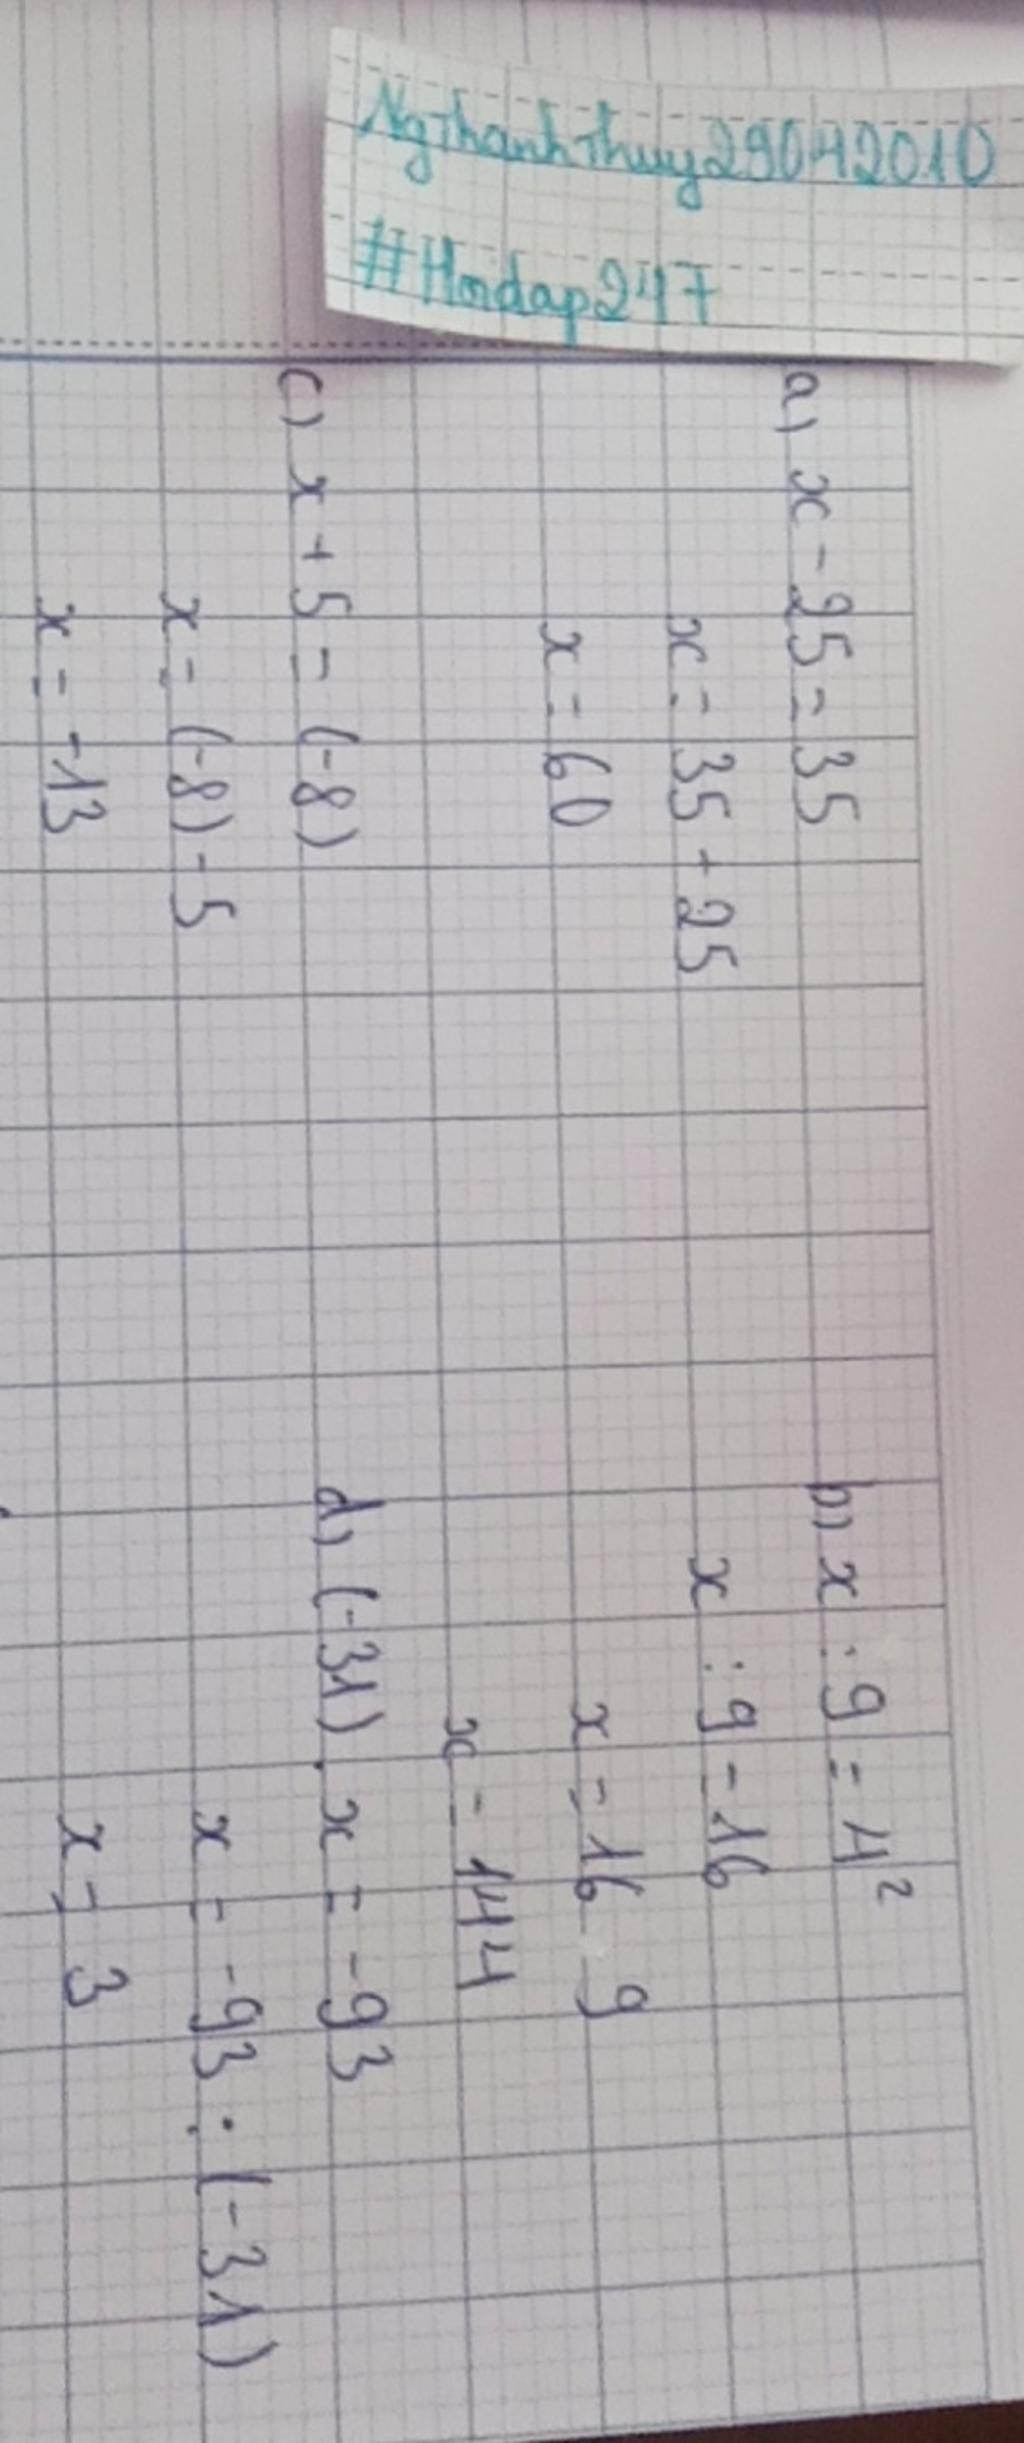 NgThanhThuy29042010
#Hoidap247
a) x - 25 = 35
x = 35 + 25
x = 60
b) x : 9 = 4²
x : 9 = 16
x = 16 . 9
x = 144
c) x + 5 = (-8)
x = (-8) - 5
x = -13
d) (-31) . x = -93
x = -93 : (-31)
x = 3